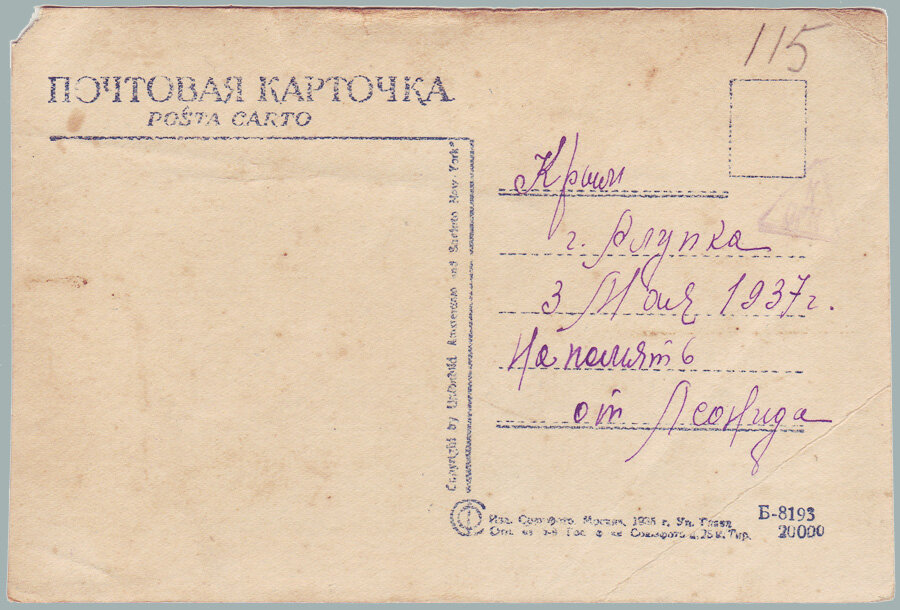 115
ПОЧТОВАЯ КАРТОЧКА
POŜTA CARTO
Крым
г. Алупка
3 Мая 1937 г.
На память
от Леонида
Copyright by Unionbild Amsterdam and Soyfoto New-York
Изд. Союзфото. Москва, 1936 г. Уп.
Отп. Гос. Союзфото Тир.
Б-8193
20000